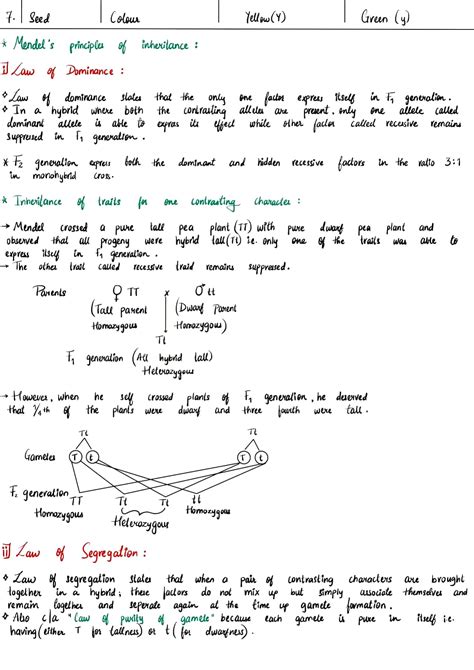 7. Seed Colour Yellow (Y) Green (y)
* Mendel's principles of inheritance :
i] Law of Dominance :
❖ Law of dominance states that the only one factor express itself in F₁ generation.
❖ In a hybrid where both the contrasting alleles are present, only one allele called
dominant allele is able to express its effect while other factor called recessive remains
suppressed in F₁ generation .
* F₂ generation express both the dominant and hidden recessive factors in the ratio 3:1
in monohybrid cross.
* Inheritance of traits for one contrasting character :
→ Mendel crossed a pure tall pea plant (TT) with pure dwarf pea plant and
observed that all progeny were hybrid tall (Tt) i.e. only one of the traits was able to
express itself in F₁ generation .
→ The other trait called recessive traid remains suppressed.
Parents ♀ TT x ♂ tt
(Tall parent (Dwarf Parent
Homozygous) Homozygous)
Tt
F₁ generation (All hybrid tall)
Heterozygous
→ However, when he self crossed plants of F₁ generation, he
that 1/4th of the plants were dwarf and three fourth were tall .
Tt Tt
Gametes T t T t
F₂ generation TT Tt Tt tt
Homozygous Heterozygous Homozygous
ii] Law of Segregation :
❖ Law of segregation states that when a pair of contrasting characters are brought
together in a hybrid ; these factors do not mix up but simply associate themselves and
remain together and seperate again at the time up gamete formation .
❖ Also c/a "Law of purity of gamete" because each gamete is pure in itself i.e.
having (either T for tallness) or t ( for dwarfness) .